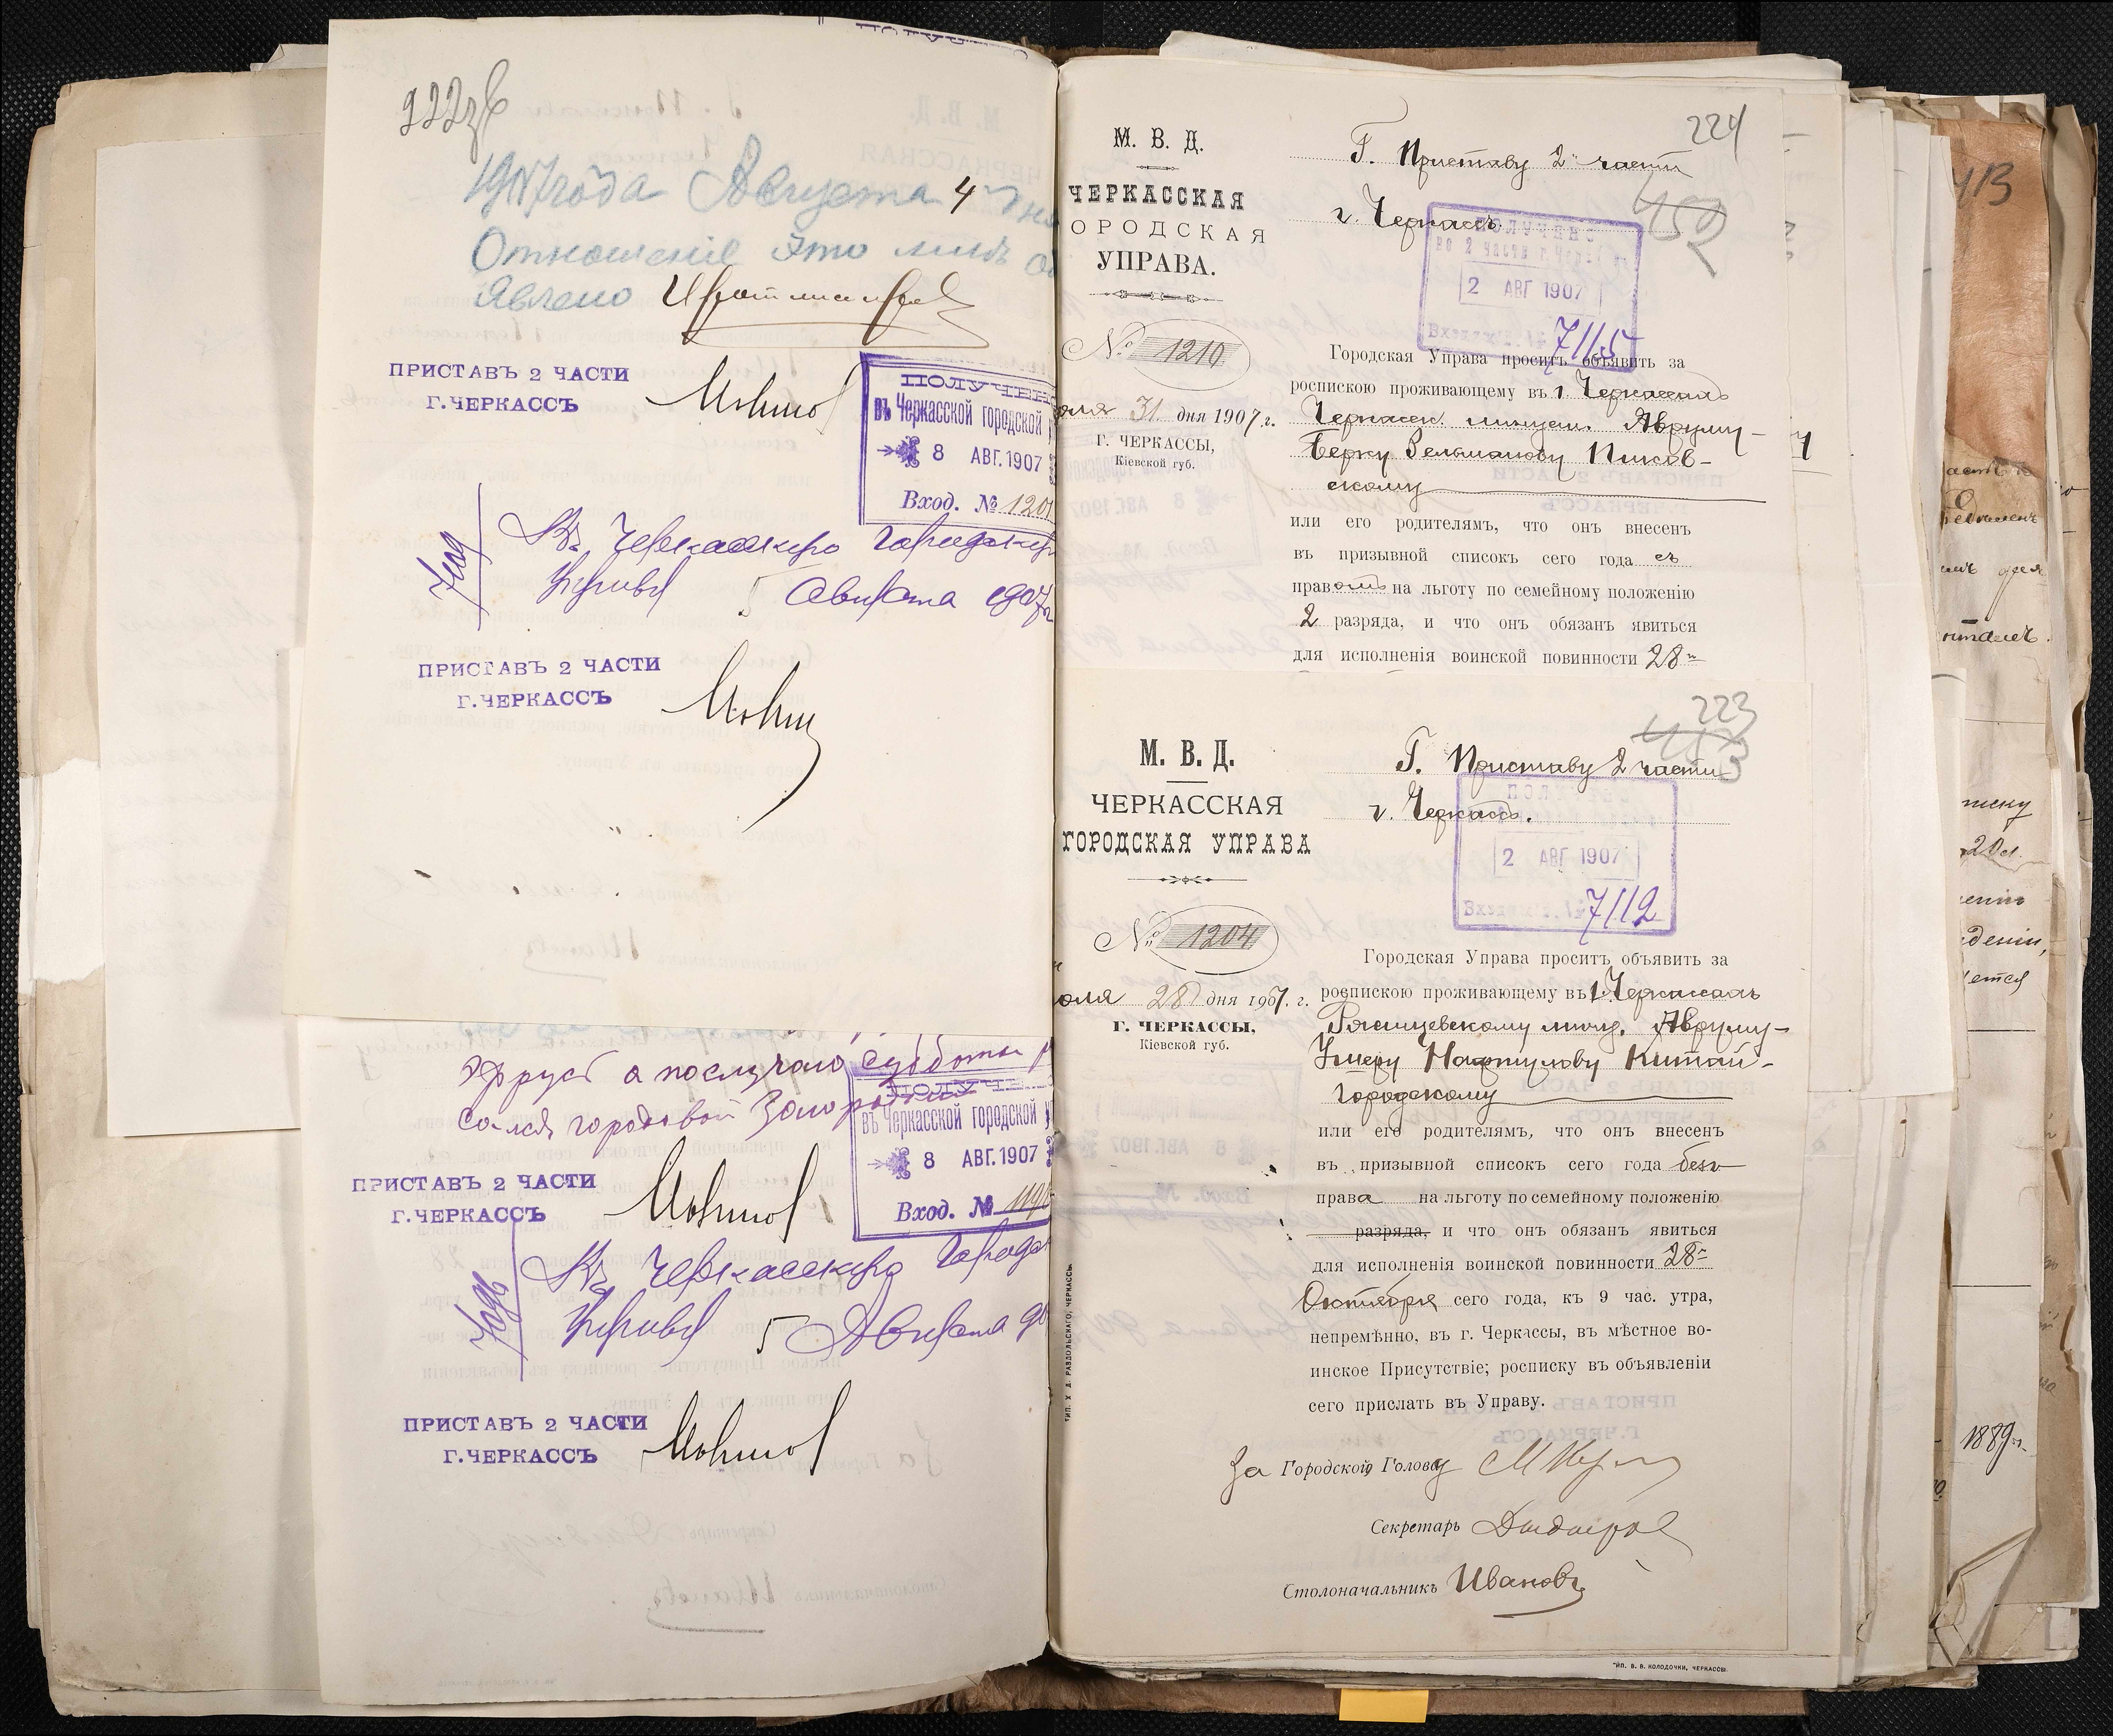 222об
1907 года Августа 4 дня
Отношеніе это мнѣ об
явлено
ПРИСТАВЪ 2 ЧАСТИ
Г. ЧЕРКАССЪ
ПОЛУЧЕН
въ Черкасской городской
8 АВГ. 1907
Вход. № 1201
Въ Черкасскую Городскую
Управу 5 Августа 1907 г.
ПРИСТАВЪ 2 ЧАСТИ
Г. ЧЕРКАССЪ
а по случаю субботы
ся городовой
ПОЛУЧЕ
въ Черкасской городской у
8 АВГ. 1907
Вход. №
ПРИСТАВЪ 2 ЧАСТИ
Г. ЧЕРКАССЪ
Въ Черкасскую Городс
Управу 5 Августа 90
ПРИСТАВЪ 2 ЧАСТИ
Г. ЧЕРКАССЪ
224
452
М. В. Д.
ЧЕРКАССКАЯ
ОРОДСКАЯ
УПРАВА.
№ 1210
юля 31 дня 1907 г.
Г. ЧЕРКАССЫ,
Кіевской губ.
Г. Приставу 2 части
г. Черкассъ
ПОЛУЧЕНО
2 АВГ 1907
7115
Городская Управа проситъ объявить за
роспискою проживающему въ г. Черкассахъ
Черкасск. мѣщан. Авруму-
Берку Зельманову Пиков-
скому
или его родителямъ, что онъ внесенъ
въ призывной списокъ сего года съ
правомъ на льготу по семейному положенію
2 разряда, и что онъ обязанъ явиться
для исполненія воинской повинности 28го
223
453
М. В. Д.
ЧЕРКАССКАЯ
ГОРОДСКАЯ УПРАВА
№ 1204
юля 28 дня 1907 г.
Г. ЧЕРКАССЫ,
Кіевской губ.
Г. Приставу 2 части
г. Черкассъ.
2 АВГ 1907
7112
Городская Управа проситъ объявить за
роспискою проживающему въ г. Черкассахъ
Ряснцевскому мѣщ. Авруму-
Нафтулову Китай-
городскому
или его родителямъ, что онъ внесенъ
въ призывной списокъ сего года безъ
права на льготу по семейному положенію
разряда, и что онъ обязанъ явиться
для исполненія воинской повинности 28го
Октября сего года, къ 9 час. утра,
непремѣнно, въ г. Черкассы, въ мѣстное во-
инское Присутствіе; росписку въ объявленіи
сего прислать въ Управу.
За Городской Голову
Секретарь
Столоначальникъ Ивановъ
ТИП. Х. Д. РАЗДОЛЬСКАГО, ЧЕРКАССЫ.
ТИП. В. В. КОЛОДОЧКИ, ЧЕРКАССЫ.
413
1889 г.